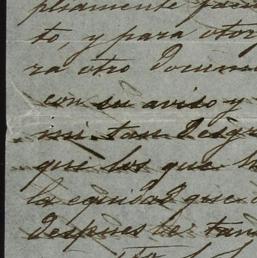 pliamente fa
to, y para otor
ra otro Docum
con su aviso y
mi tan desgra
que los que
la equidad que
despues de tan